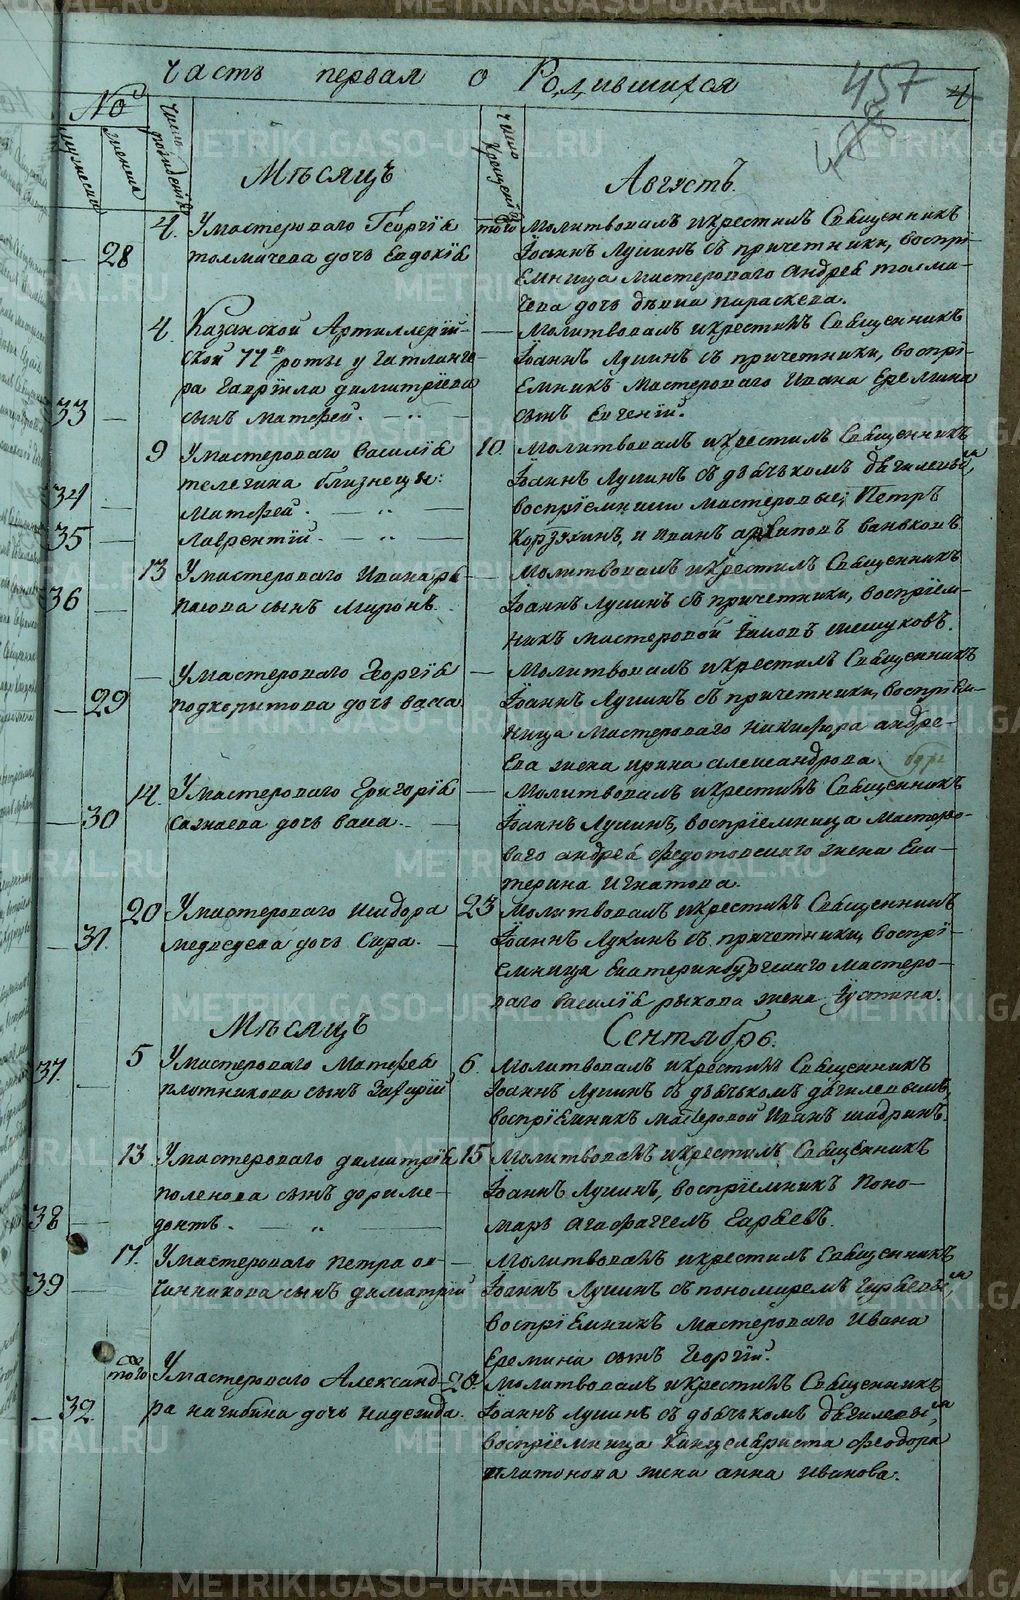 Часть первая о Родившихся
457
4
478
№
мужеска
женска
число рождения
число крещения
Мѣсяцъ
Августъ.
28
4. У мастероваго Георгія
толмачева дочь Евдокія
того Молитвовалъ и крестилъ Священникъ
Іоаннъ Лукинъ съ причетники, воспрі-
емница мастероваго андрея толма-
чева дочь дѣвица параскева.
33
4. Казанской Артиллерій-
ской 77й роты у Гатлангера
Гавріила димитріева
сынъ матфей.
— Молитвовалъ и крестилъ Священникъ
Іоаннъ Лукинъ съ причетники, воспрі-
емникъ мастероваго Ивана Еремина
сынъ Евгеній.
34
35
9 У мастероваго Василія
телегина близнецы:
Матфей.
Лаврентій.
10. Молитвовалъ и крестилъ Священникъ
Іоаннъ Лукинъ съ дьячькомъ дягилевымъ,
воспріемники мастеровые; Петръ
Корзухинъ, и иванъ архиповъ ваньковъ
36
13 У мастероваго Ивана
сынъ Миронъ.
— Молитвовалъ и крестилъ Священникъ
Іоаннъ Лукинъ съ причетники, воспріем-
никъ мастеровой Іаковъ мешуковъ.
29
— У мастероваго Георгія
подкоритова дочь васса
— Молитвовалъ и крестилъ Священникъ
Іоаннъ Лукинъ съ причетники, воспріем-
ница мастероваго никифора андре-
ева жена ирина александрова.
30
14. У мастероваго Григорія
дочь васса.
— Молитвовалъ и крестилъ Священникъ
Іоаннъ Лукинъ, воспріемница мастеро-
ваго андрея федотовскаго жена Ека-
терина игнатова.
31.
20 У мастероваго Исидора
медведева дочь Сара.
23 Молитвовалъ и крестилъ Священникъ
Іоаннъ Лукинъ съ причетники, воспрі-
емница Екатеринбургскаго мастеро-
ваго василія рыкова жена Іустина.
Мѣсяцъ
Сентябрь.
37.
5 У мастероваго Матфея
плотникова сынъ Захарій
6. Молитвовалъ и крестилъ Священникъ
Іоаннъ Лукинъ съ дьячькомъ дягилевымъ,
воспріемникъ мастеровой Иванъ шадринъ.
38
13 У мастероваго димитрія
поленова сынъ дориме-
донтъ.
15 Молитвовалъ и крестилъ Священникъ
Іоаннъ Лукинъ, воспріемникъ поно-
марь агафаггелъ Гарьевъ.
39
17. У мастероваго петра ов-
чинникова сынъ димитрій
— Молитвовалъ и крестилъ Священникъ
Іоаннъ Лукинъ съ пономаремъ Гурьевымъ,
воспріемникъ мастероваго Ивана
Еремина сынъ Георгій.
32.
того У мастероваго Александ-
ра нагибина дочь надежда.
20. Молитвовалъ и крестилъ Священникъ
Іоаннъ Лукинъ съ дьячькомъ дягилевымъ,
воспріемница Канцеляриста феодора
платонова жена анна иванова.
METRIKI.GASO-URAL.RU